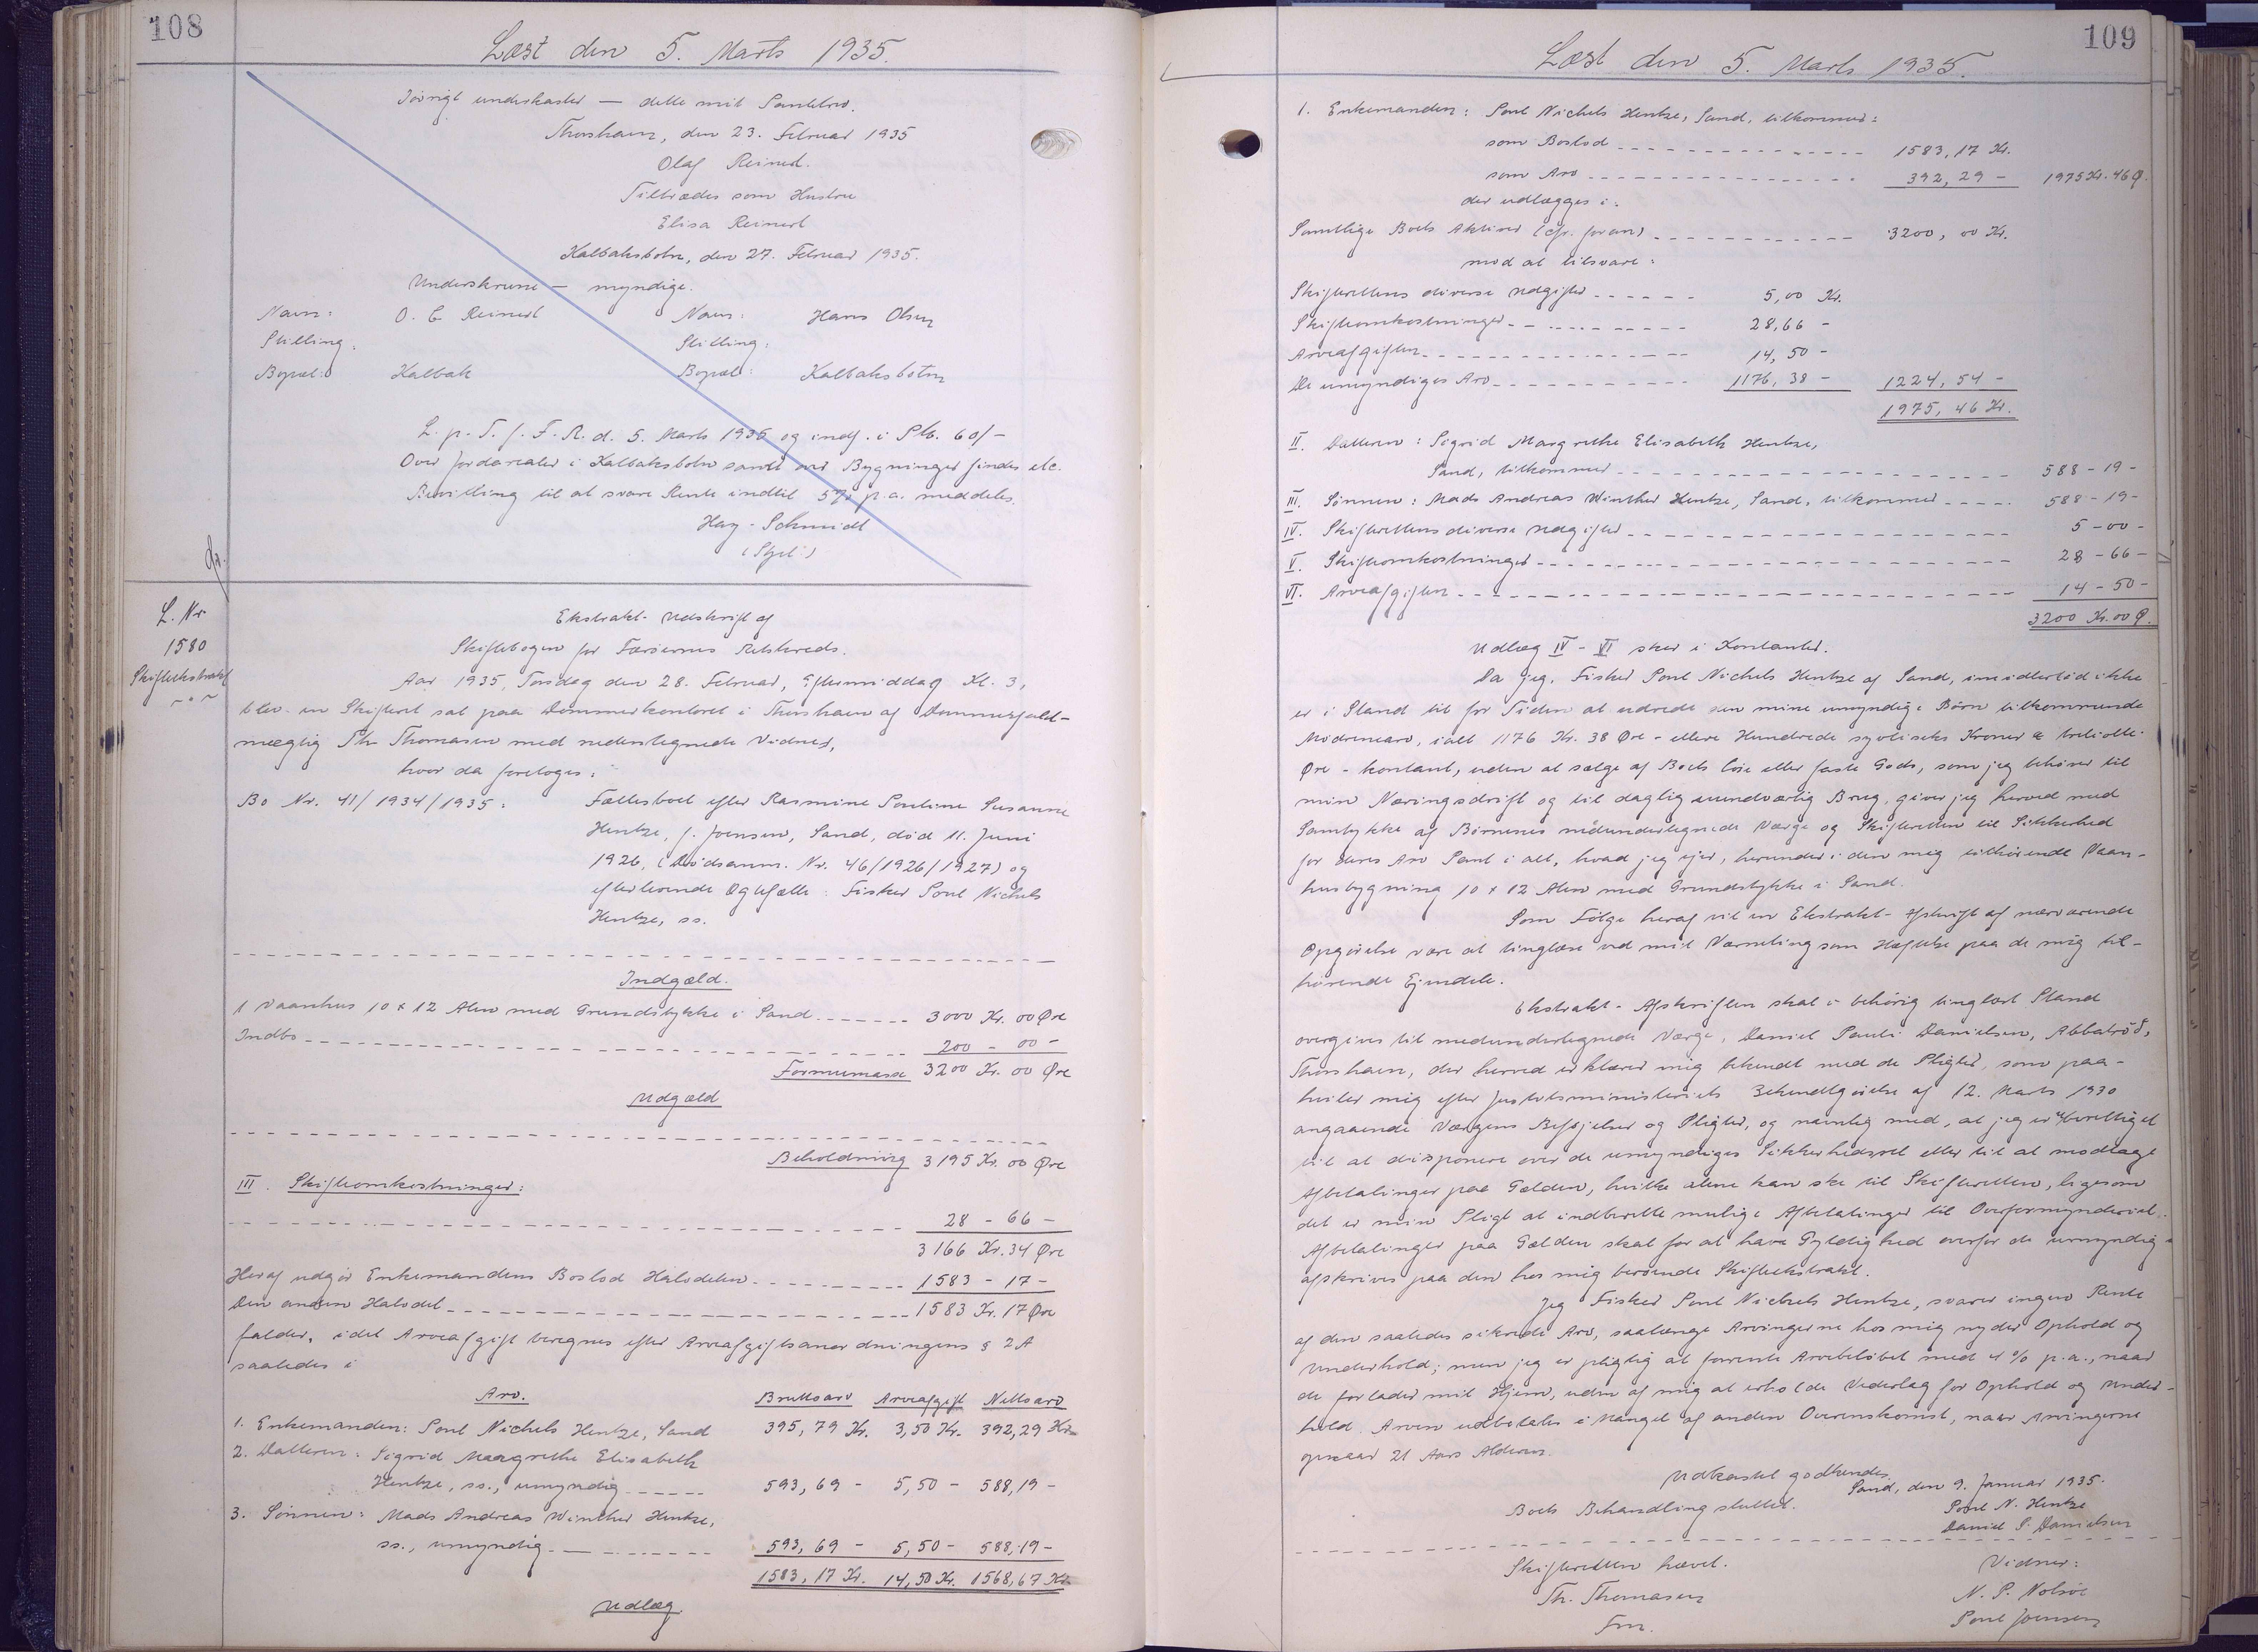 108
Læst den 5. Marts 1935.
Iøvrigt underkaster — dette mit Pantebrev.
Thorshavn, den 23. Februar 1935
Olaf Reinert.
Tiltrædes som Hustru
Elisa Reinert
Kalbaksbotn, den 27. Februar 1935.
Underskrevne — myndige.
Navn: O. C. Reinert Navn: Hans Olsen
Stilling: Stilling:
Bopæl: Kalbak Bopæl: Kalbaksbotn
L. p. T. f. F. R. d. 5. Marts 1935 og indf. i Ptb. 60/-
Over Jordarealer i Kalbaksbotn samt om Bygninger findes etc.
Bevilling til at svare Rente indtil 5% p.a. meddeles.
Hay-Schmidt
L. Nr
1580
Skifteekstrakt
Ekstrakt-Udskrift af
Skiftebogen for Færøernes Retskreds.
Aar 1935, Torsdag den 28. Februar, Eftermiddag Kl. 3,
blev en Skifteret sat paa Dommerkontoret i Thorshavn af Dommerfuld-
mægtig Th. Thomasen med nedentegnede Vidner,
hvor da foretoges:
Bo Nr. 41/1934/1935: Fællesboet efter Rasmine Pouline Susanne
Hentze, f. Joensen, Sand, død 11. Juni
1926, (Dødsanm. Nr. 46/1926/1927) og
efterlevende Ægtefælle: Fisker Poul Nichels
Hentze, ss.
Indgæld.
1 Vaanhus 10 x 12 Alen med Grundstykke i Sand 3000 Kr. 00 Øre
Indbo 200 - 00 -
Formuemasse 3200 Kr. 00 Øre
Udgæld
Beholdning 3195 Kr. 00 Øre
III. Skifteomkostninger:
28 - 66 -
3166 Kr. 34 Øre
Heraf udgør Enkemandens Boslod Halvdelen 1583 - 17 -
Den anden Halvdel 1583 Kr. 17 Øre
falder, idet Arveafgift beregnes efter Arveafgiftsanordningens § 2 A
saaledes i
Arv. Bruttoarv Arveafgift Nettoarv
1. Enkemanden: Poul Nichels Hentze, Sand 395,79 Kr. 3,50 Kr. 392,29 Kr.
2. Datteren: Sigrid Maargrethe Elisabeth
Hentze, ss., umyndig 593,69 - 5,50 - 588,19 -
3. Sønnen: Mads Andreas Winther Hentze,
ss., umyndig 593,69 - 5,50 - 588,19 -
1583,17 Kr. 14,50 Kr. 1568,67 Kr.
Udlæg.
109
Læst den 5. Marts 1935.
1. Enkemanden: Poul Nichels Hentze, Sand, tilkommer:
som Boslod 1583,17 Kr.
som Arv 392,29 - 1975 Kr. 46 Ø.
der udlægges i:
Samtlige Boets Aktiver (cfr. foran) 3200,00 Kr.
mod at tilsvare:
Skifterettens diverse Udgifter 5,00 Kr.
Skifteomkostninger 28,66 -
Arveafgiften 14,50 -
De umyndiges Arv 1176,38 - 1224,54 -
1975,46 Kr.
II. Datteren: Sigrid Margrethe Elisabeth Hentze,
Sand, tilkommer 588 - 19 -
III. Sønnen: Mads Andreas Winther Hentze, Sand, tilkommer 588 - 19 -
IV. Skifterettens diverse Udgifter 5 - 00 -
V. Skifteomkostninger 28 - 66 -
VI. Arveafgiften 14 - 50 -
3200 Kr. 00 Ø.
Udlæg IV - VI sker i Kontanter.
Da jeg, Fisker Poul Nichels Hentze af Sand, imidlertid ikke
er i Stand til for Tiden at udrede den mine umyndige Børn tilkommende
Mødrenearv, ialt 1176 Kr. 38 Øre - elleve Hundrede syvtiseks Kroner & treti otte
Øre - kontant, uden at sælge af Boets løse eller faste Gods, som jeg behøver til
min Næringsdrift og til daglig uundværlig Brug, giver jeg herved med
Samtykke af Børnenes medundertegnede Værge og Skifteretten til Sikkerhed
for deres Arv Pant i alt, hvad jeg ejer, herunder i den mig tilhørende Vaan-
husbygning 10 x 12 Alen med Grundstykke i Sand.
Som Følge heraf vil en Ekstrakt-Afskrift af nærværende
Opgørelse være at tinglæse ved mit Værneting som Hæftelse paa de mig til-
hørende Ejendele.
Ekstrakt-Afskriften skal i behørig tinglæst Stand
overgives til medundertegnede Værge, Daniel Pauli Danielsen, Abbatrøð,
Thorshavn, der herved erklærer mig bekendt med de Pligter, som paa-
hviler mig efter Justitsministeriets Bekendtgørelse af 12. Marts 1930
angaaende Værgens Beføjelser og Pligter, og navnlig med, at jeg er uberettiget
til at disponere over de umyndiges Sikkerhedsret eller til at modtage
Afbetalinger paa Gælden, hvilke alene kan ske til Skifteretten, ligesom
det er min Pligt at indberette mulige Afbetalinger til Overformynderiet.
Afbetalinger paa Gælden skal for at have Gyldighed overfor de umyndige
afskrives paa den hos mig beroende Skifteekstrakt.
Jeg Fisker Poul Nichels Hentze, svarer ingen Rente
af den saaledes sikrede Arv, saalænge Arvingerne hos mig nyder Ophold og
Underhold; men jeg er pligtig at forrente Arvebeløbet med 4% p.a., naar
de forlader mit Hjem, uden af mig at erholde Vederlag for Ophold og Under-
hold. Arven udbetales i Mangel af anden Overenskomst, naar Arvingerne
opnaar 21 Aars Alderen.
Udkastet godkendes.
Sand, den 9. Januar 1935.
Boets Behandling sluttet. Poul N. Hentze
Daniel P. Danielsen
Skifteretten hævet. Vidner:
Th. Thomasen N. P. Nolsøe
Fm. Poul Joensen